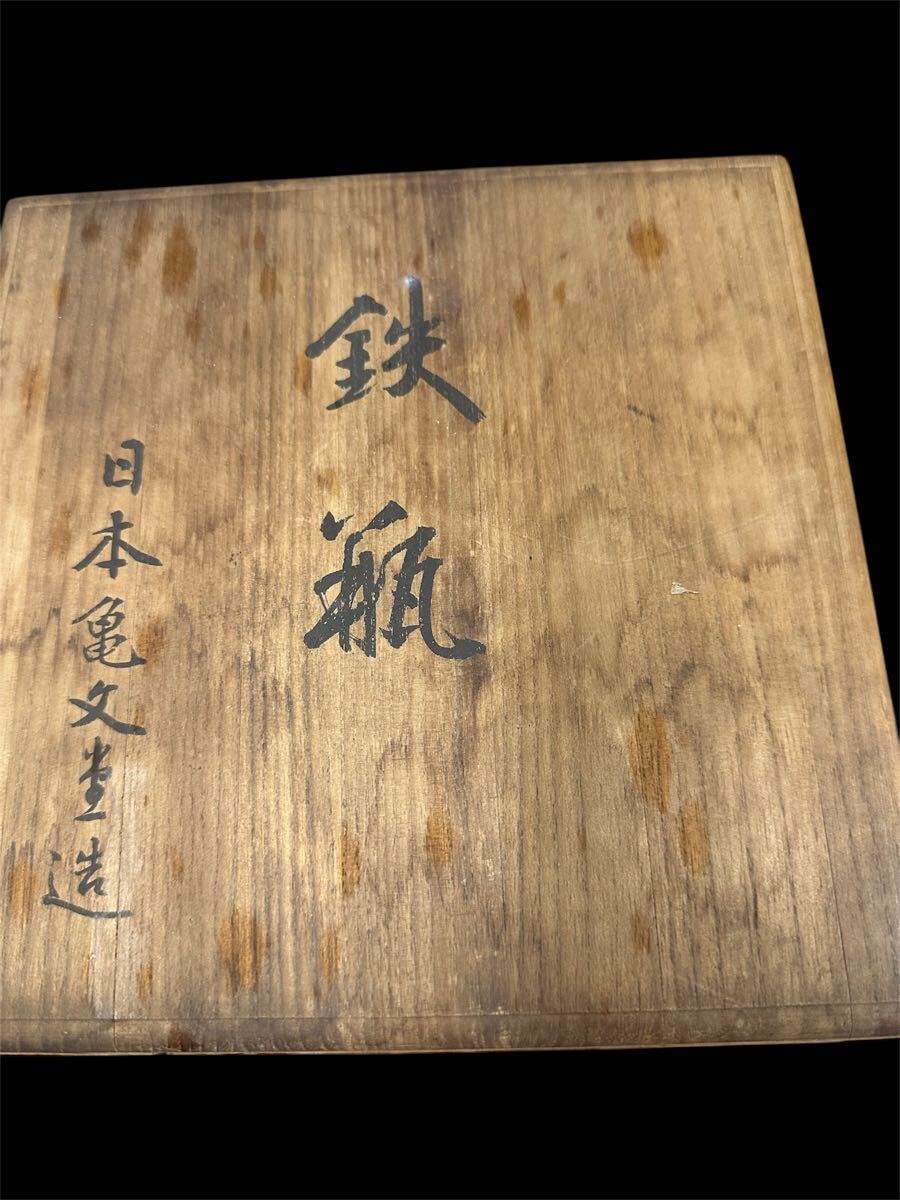 鉄瓶
日本亀文堂造